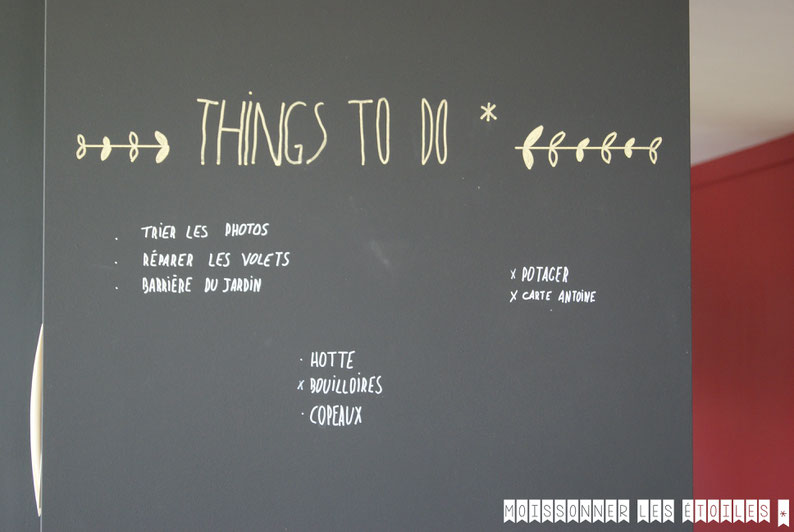 THINGS TO DO *
. TRIER LES PHOTOS
. RÉPARER LES VOLETS
. BARRIÈRE DU JARDIN
x POTAGER
x CARTE ANTOINE
· HOTTE
x BOUILLOIRES
· COPEAUX
MOISSONNER LES ÉTOILES *